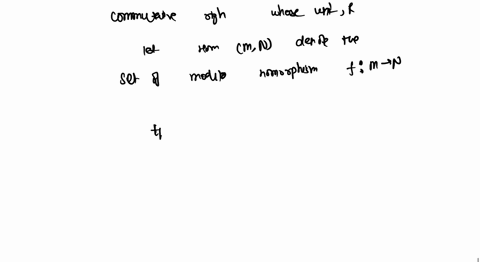 commutative ring whose unit, R
let Hom (M, N) denote the
set of module homorphism f : M → N